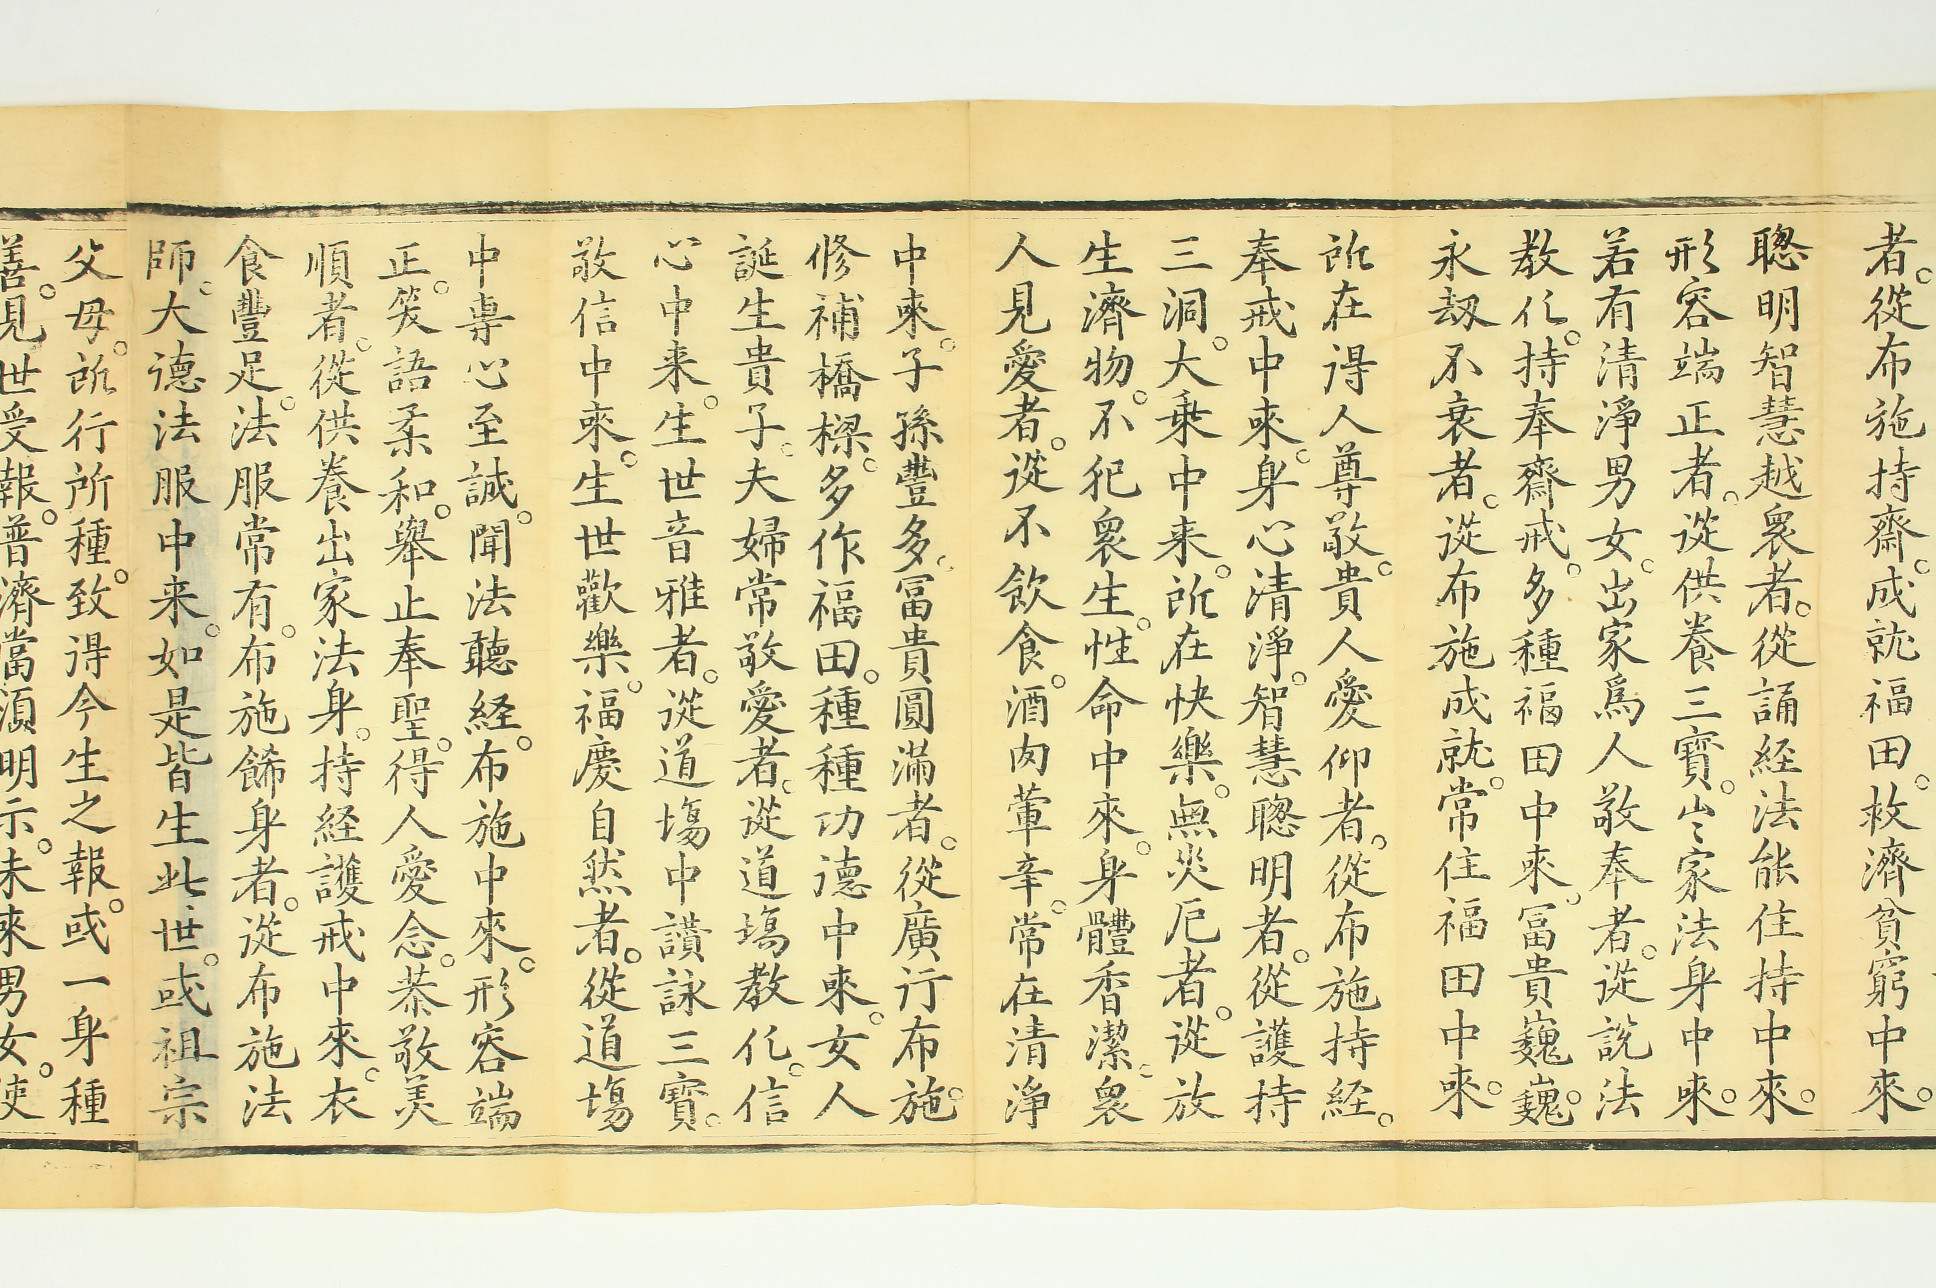 者。從布施持齋。成就福田。救濟貧窮中來。
聰明智慧越衆者。從誦経法能住持中來。
形容端正者。從供養三寶。出家法身中來。
若有清淨男女。出家爲人敬奉者。從説法
教化。持奉齋戒。多種福田中來。冨貴巍巍。
永劫不衰者。從布施成就。常住福田中來。
所在得人尊敬。貴人愛仰者。從布施持経。
奉戒中來。身心清淨。智慧聰明者。從護持
三洞。大乗中来。所在快樂。無災厄者。從放
生濟物。不犯衆生。性命中來。身體香潔。衆
人見愛者。從不飲食。酒肉葷辛。常在清淨
中來。子孫豐多。冨貴圓滿者。從廣行布施。
修補橋樑。多作福田。種種功德中來。女人
誕生貴子。夫婦常敬愛者。從道塲教化。信
心中来。生世音雅者。從道塲中讃詠三寶。
敬信中來。生世歡樂。福慶自然者。從道塲
中專心至誠。聞法聽経。布施中來。形容端
正。笑語柔和。舉止奉聖。得人愛念。恭敬美
順者。從供養出家法身。持経護戒中來。衣
食豐足。法服常有。布施餙身者。從布施法
師。大德法服中来。如是皆生此世。或祖宗
父母。所行所種。致得今生之報。或一身種
善。見世受報。普濟當湏明示。未來男女。使